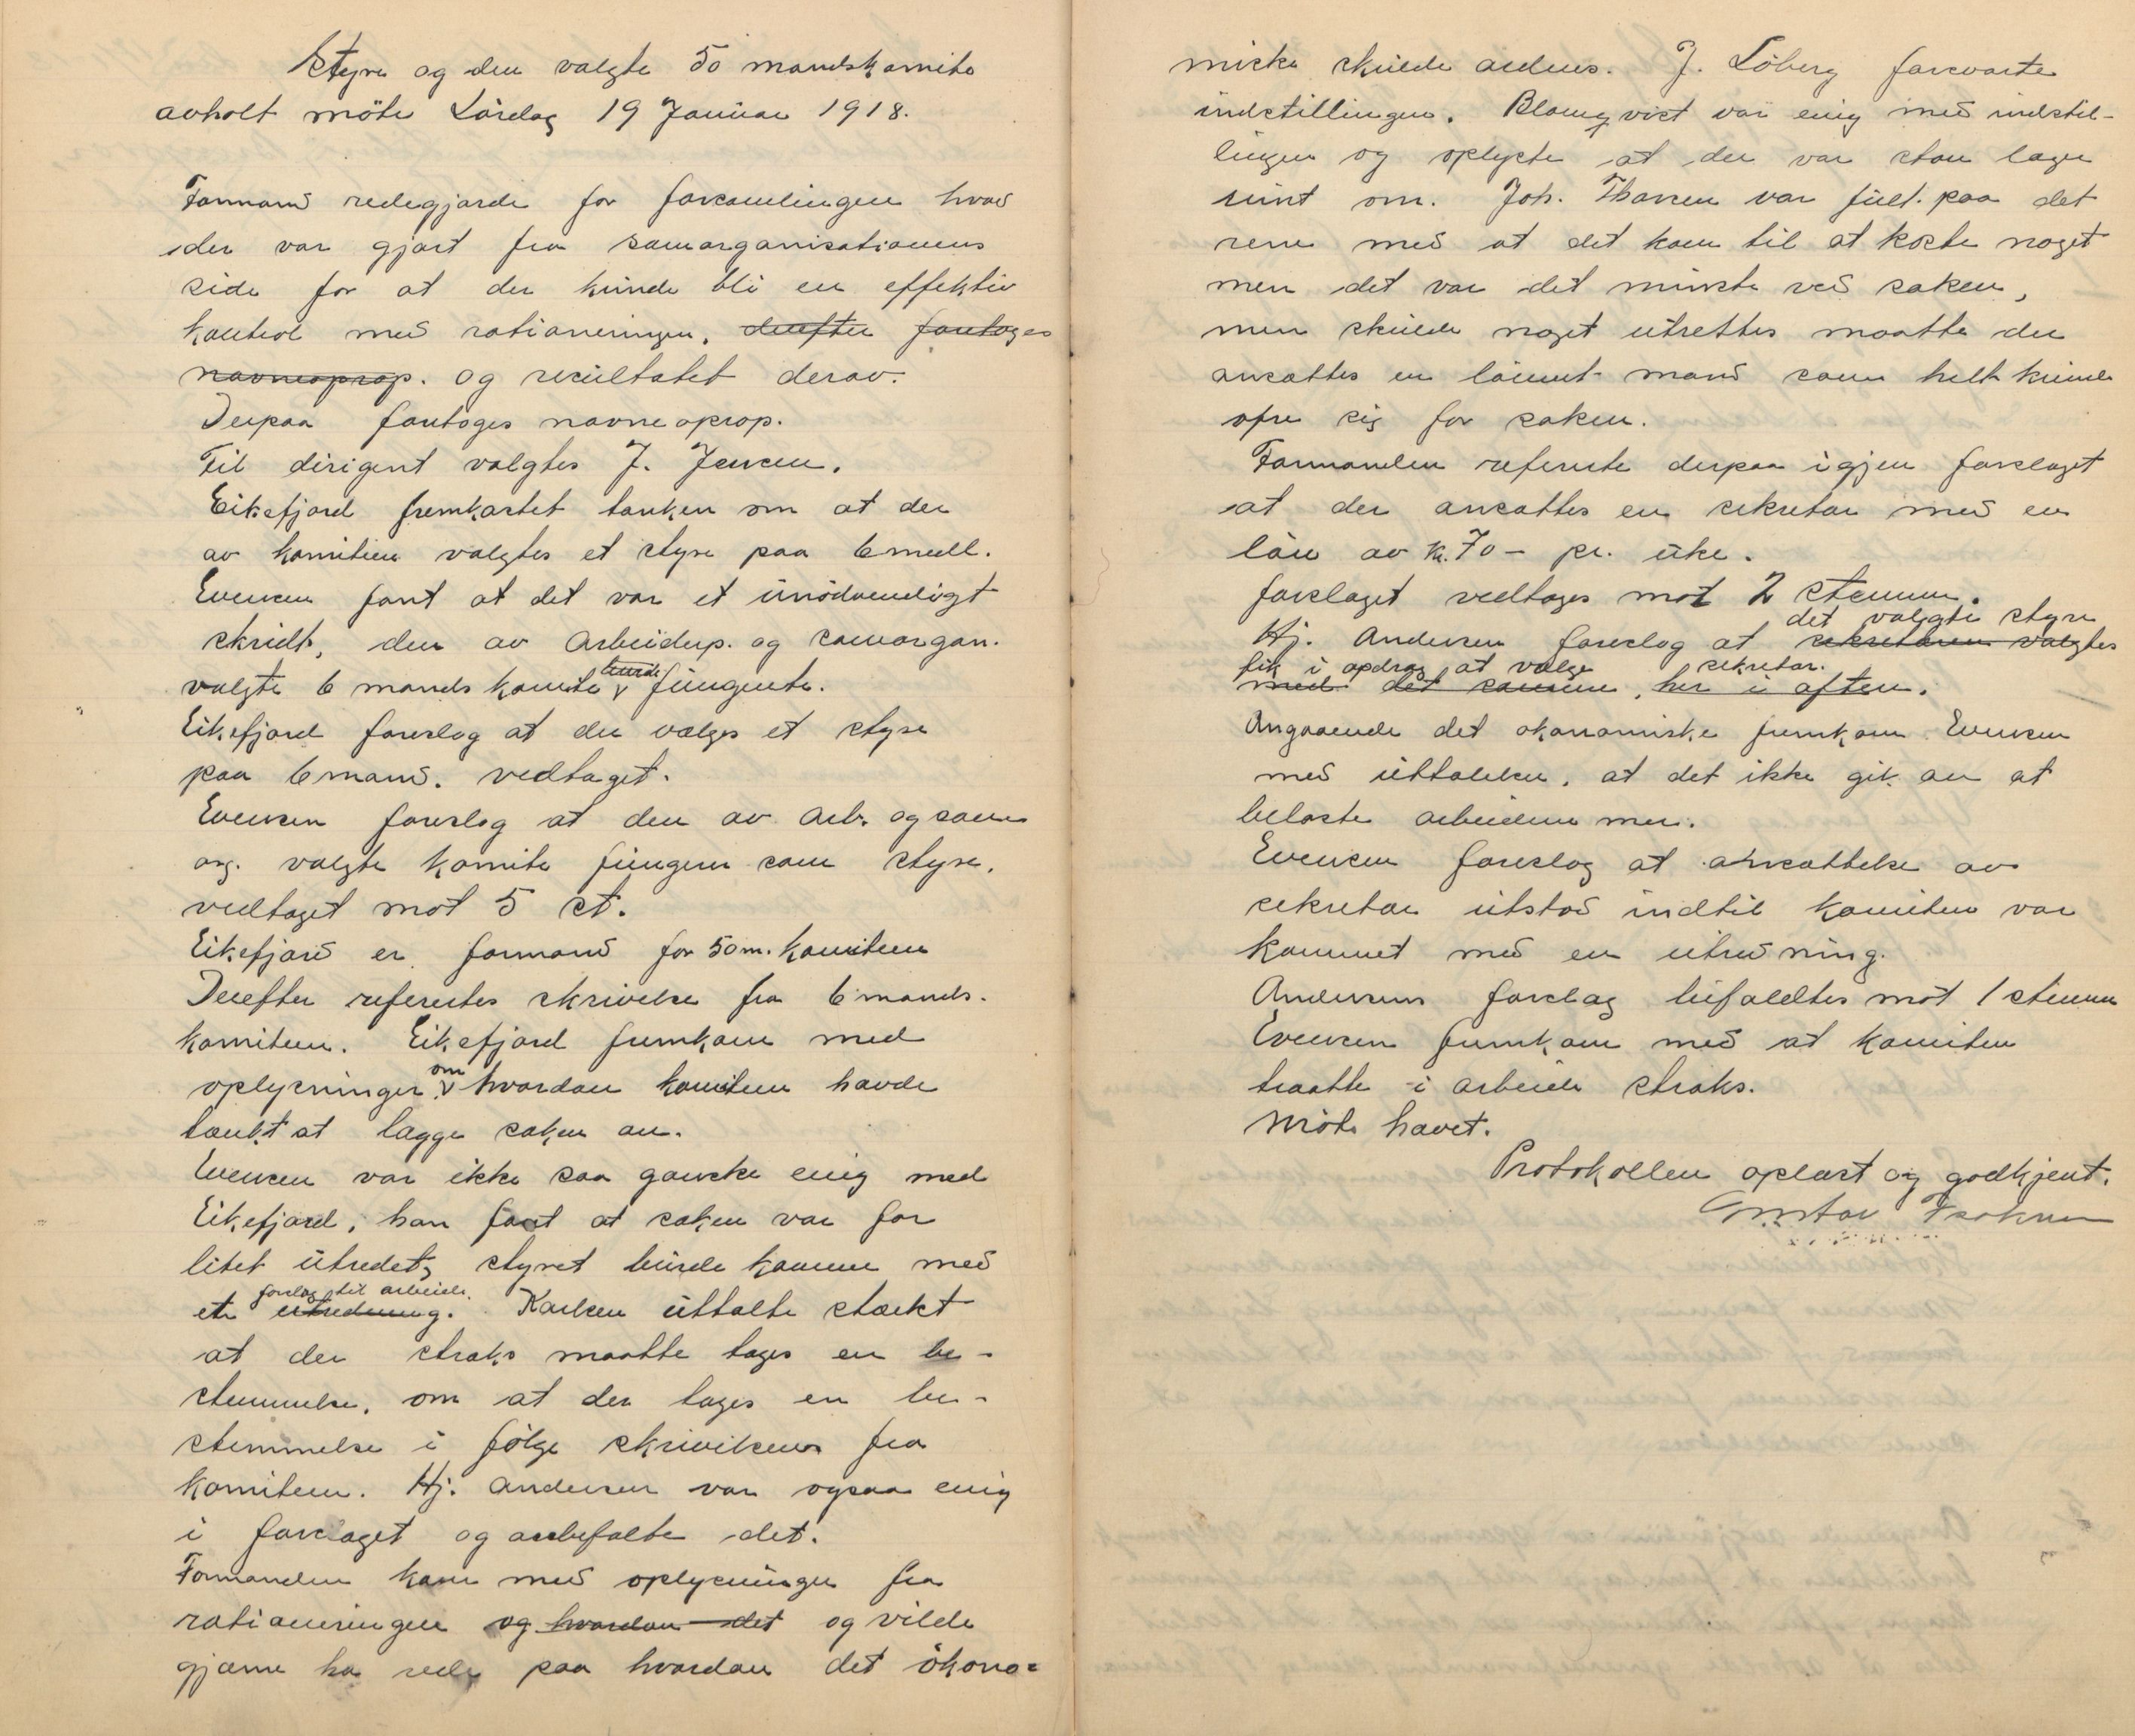 Styre og den valgte 50 mandskomite
avholt möte Lördag 19 Januar 1918.
Formand redegjorde for forsamlingen hvad
der var gjort fra samorganisationens
side for at der kunde bli en effektiv
kontrol med rationeringen, derefter foretoges
navneoprop. og resultatet derav.
Derpaa foretoges navneoprop.
Til dirigent valgtes J. Jensen.
Eikefjord fremkastet tanken om at der
av komiteen valgtes et styre paa 6 medl.
Evensen fant at det var et unödvendigt
skridt, den av Arbeiderp. og samorgan.
valgte 6 mands komite burde fungerte.
Eikefjord foreslog at der vælges et styre
paa 6 mand. vedtaget.
Evensen foreslog at den av Arb. og sam
org. valgte komite fungerer som styre.
vedtaget mot 5 st.
Eikefjord er formand for 50 m. komiteen
Derefter refertes skrivelse fra 6 mands.
komiteen. Eikefjord fremkom med
oplysninger om hvordan komiteen havde
tænkt at lægge saken an.
Evensen var ikke saa ganske enig med
Eikefjord, han fant at saken var for
litet utredet, styret burde komme med
et utredning. forslag til arbeide. Karlsen uttalte stærkt
at der straks maatte tages en be-
stemmelse, om at der tages en be-
stemmelse i fölge skrivelsen fra
komiteen. Hj. Andersen var ogsaa enig
i forslaget og anbefalte det.
Formanden kom med oplysninger fra
rationeringen og hvordan det og vilde
gjærne ha rede paa hvordan det ökono-
miske skulde ordnes. J. Löberg forsvarte
indstillingen. Blomqvist var enig med indstil-
lingen og oplyste at der var store lager
runt om. Joh. Thorsen var fuld paa det
rene med at det kom til at koste noget
men det var det minste ved saken,
men skulde noget utrettes maatte der
ansættes en lönnet mand som helt kunde
ofre sig for saken.
Formanden referete derpaa igjen forslaget
at der ansættes en sekretær med en
lön av kr. 70 – pr. uke.
forslaget vedtages mot 2 stemmer.
Hj. Andersen foreslog at sekretæren valgtes det valgte styre
fik i opdrag at vælge sekretær.
med det samme, her i aften.
Angaaende det økonomiske fremkom Evensen
med uttalelser, at det ikke gik an at
belaste arbeiderne mer.
Evensen foreslog at ansættelse av
sekretær utstod indtil komiteen var
kommet med en utredning.
Andersens forslag bifaldtes mot 1 stemme
Evensen fremkom med at komiteen
traatte i arbeide straks.
Möte hævet.
Protokollen oplæst og godkjent.
Gustav